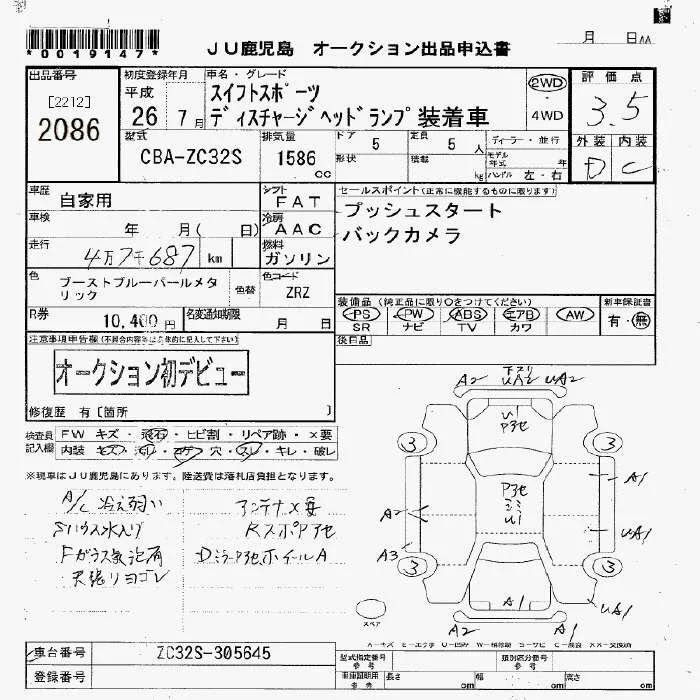 *0019147*
JU鹿児島 オークション出品申込書
月 日AA
出品番号
[2212]
2086
初度登録年月
平成
26 7月
車名・グレード
スイフトスポーツ
ディスチャージヘッドランプ装着車
2WD
4WD
評価点
3.5
外装 内装
D C
型式
CBA-ZC32S
排気量
1586
cc
ドア 5
形状
定員 5 人
積載 kg
ディーラー・並行
モデル年式 年
ハンドル 左・右
車歴
自家用
シフト
FAT
車検
年 月( 日)
冷房
AAC
走行
4万7千687 km
燃料
ガソリン
色
ブーストブルーパールメタリック
色替
色コード
ZRZ
R券
10,400円
名変通知期限
月 日
セールスポイント(正常に機能するものに限ります)
プッシュスタート
バックカメラ
装備品(純正品に限り○をつけてください)
PS PW ABS エアB AW
SR ナビ TV カワ
新車保証書
有・無
後日品
注意事項申告欄(不具合内容等は具体的に記入して下さい)
オークション初デビュー
修復歴 有[箇所 ]
検査員記入欄
FW キズ・飛石・ヒビ割・リペア跡・×要
内装 キズ・汚れ・コゲ・穴・スレ・キレ・破レ
※現車はJU鹿児島にあります。陸送費は落札店負担となります。
A/C 冷え弱い
アンテナ×要
Sハウス水入り
RスポPアセ
Fガラス気泡有
Dミラーアセ ホイールA
天張りヨゴレ
A2
UA2
UA2
U1
Pアセ
3
3
Pアセ
U1
A1
A2
UA1
A3
3
3
A1
UA1
A2
A1
スペア
車台番号
ZC32S-305645
登録番号
型式指定番号
参考
類別区分番号
参考
車庫証明用
参考
長さ cm
幅 cm
高さ cm